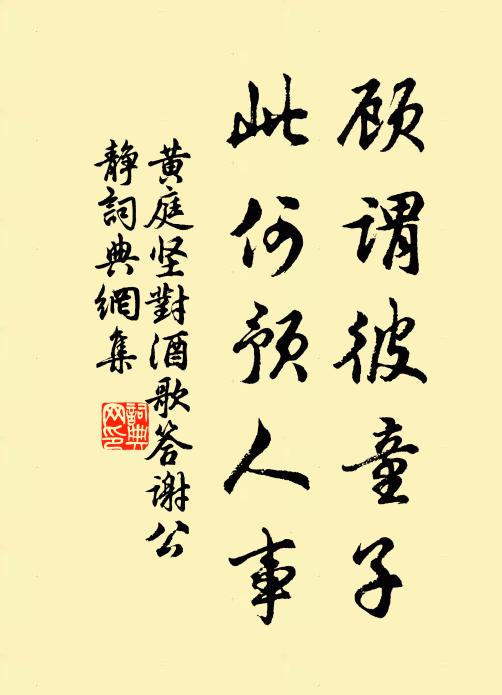 顾谓彼童子
此何预人事
黄庭坚對酒歌答谢公
静詞典網集
詞典网印